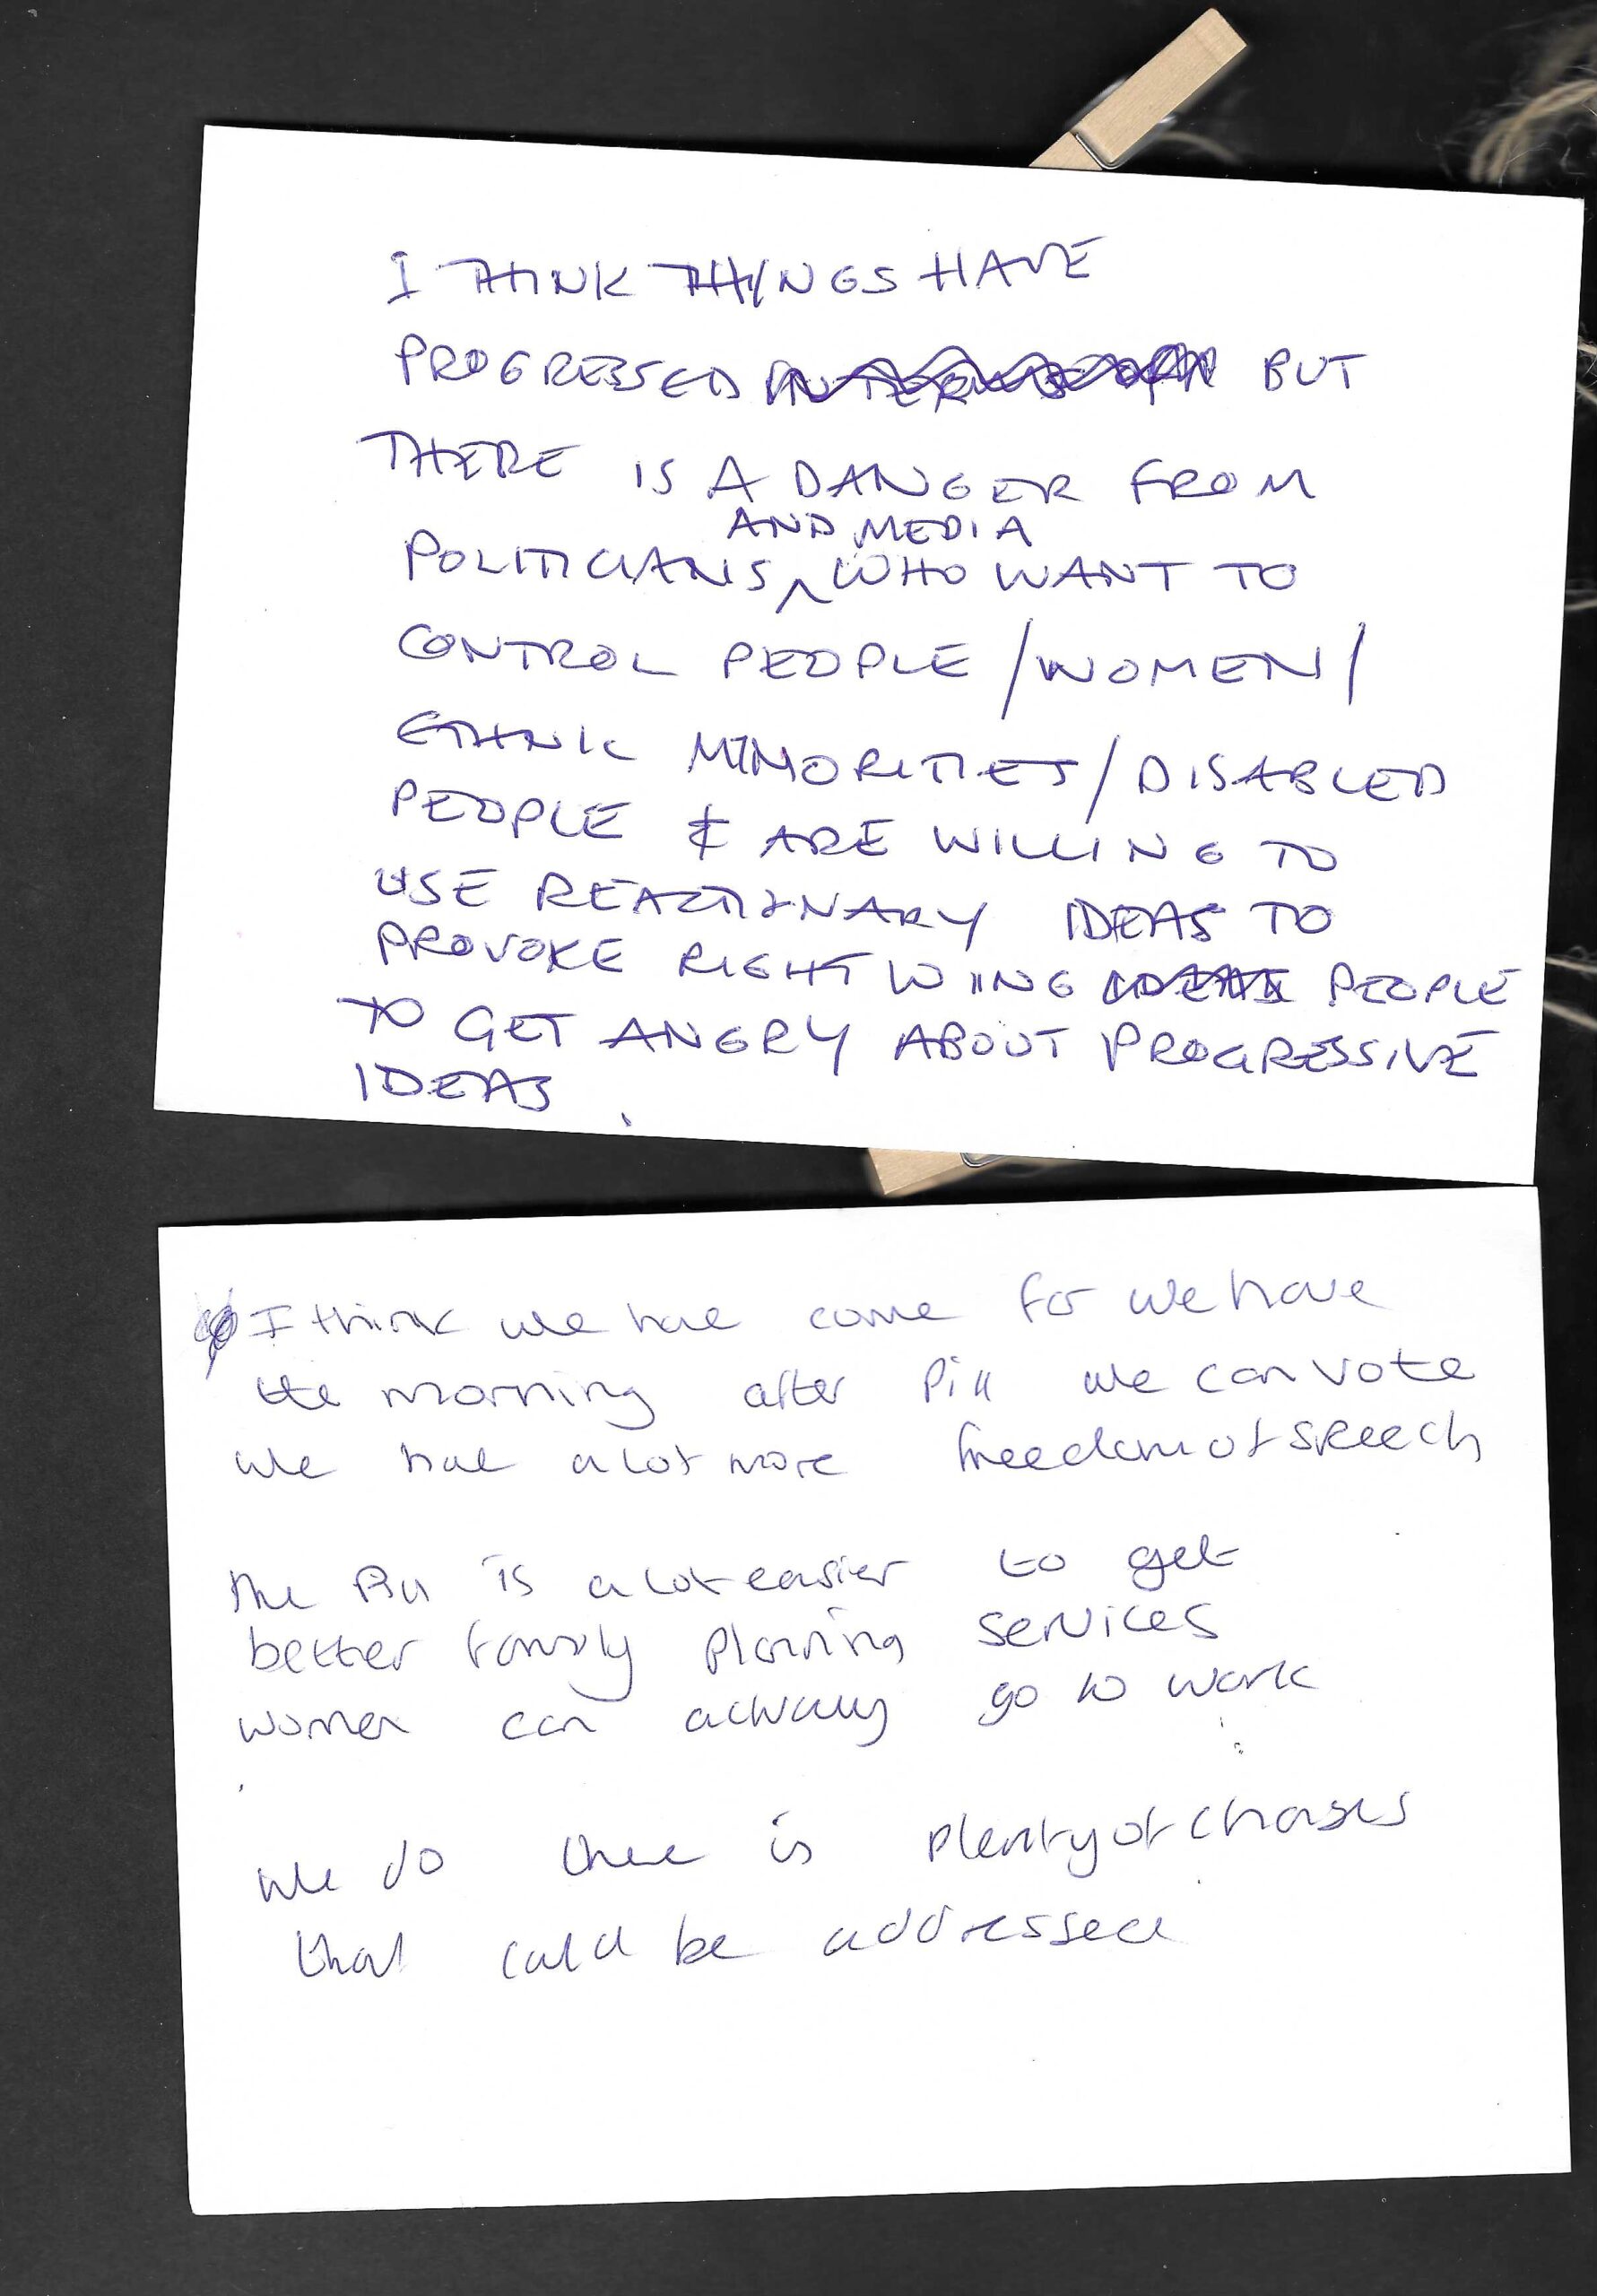 I THINK THINGS HAVE
PROGRESSED BUT
THERE IS A DANGER FROM
AND MEDIA
POLITICIANS ^ WHO WANT TO
CONTROL PEOPLE / WOMEN /
ETHNIC MINORITIES / DISABLED
PEOPLE & ARE WILLING TO
USE REACTIONARY IDEAS TO
PROVOKE RIGHT WING PEOPLE
TO GET ANGRY ABOUT PROGRESSIVE
IDEAS.
I think we have come far we have
the morning after pill we can vote
we have a lot more freedom of speech
the Pill is a lot easier to get
better family planning services
women can actually go to work
we do there is plenty of
that could be addressed